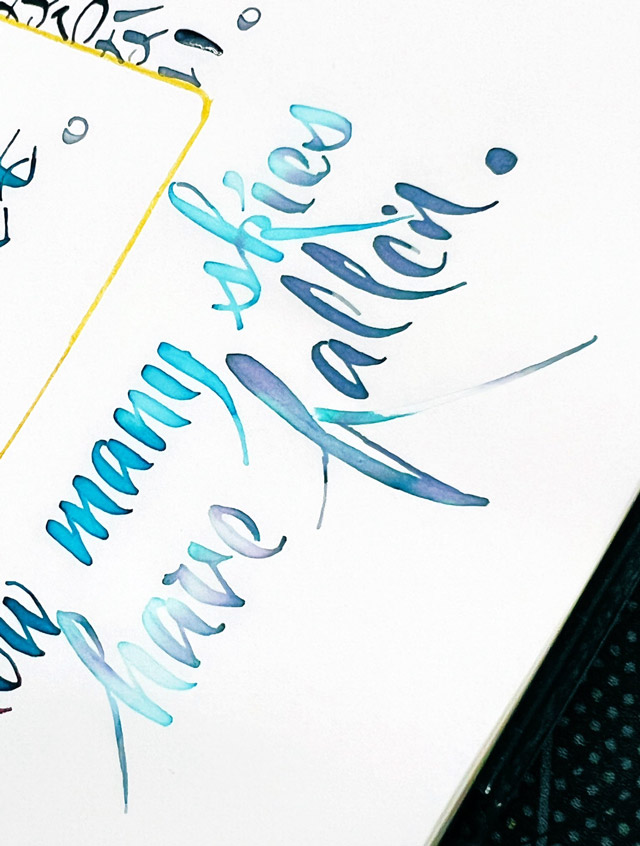 many skies
have fallen.